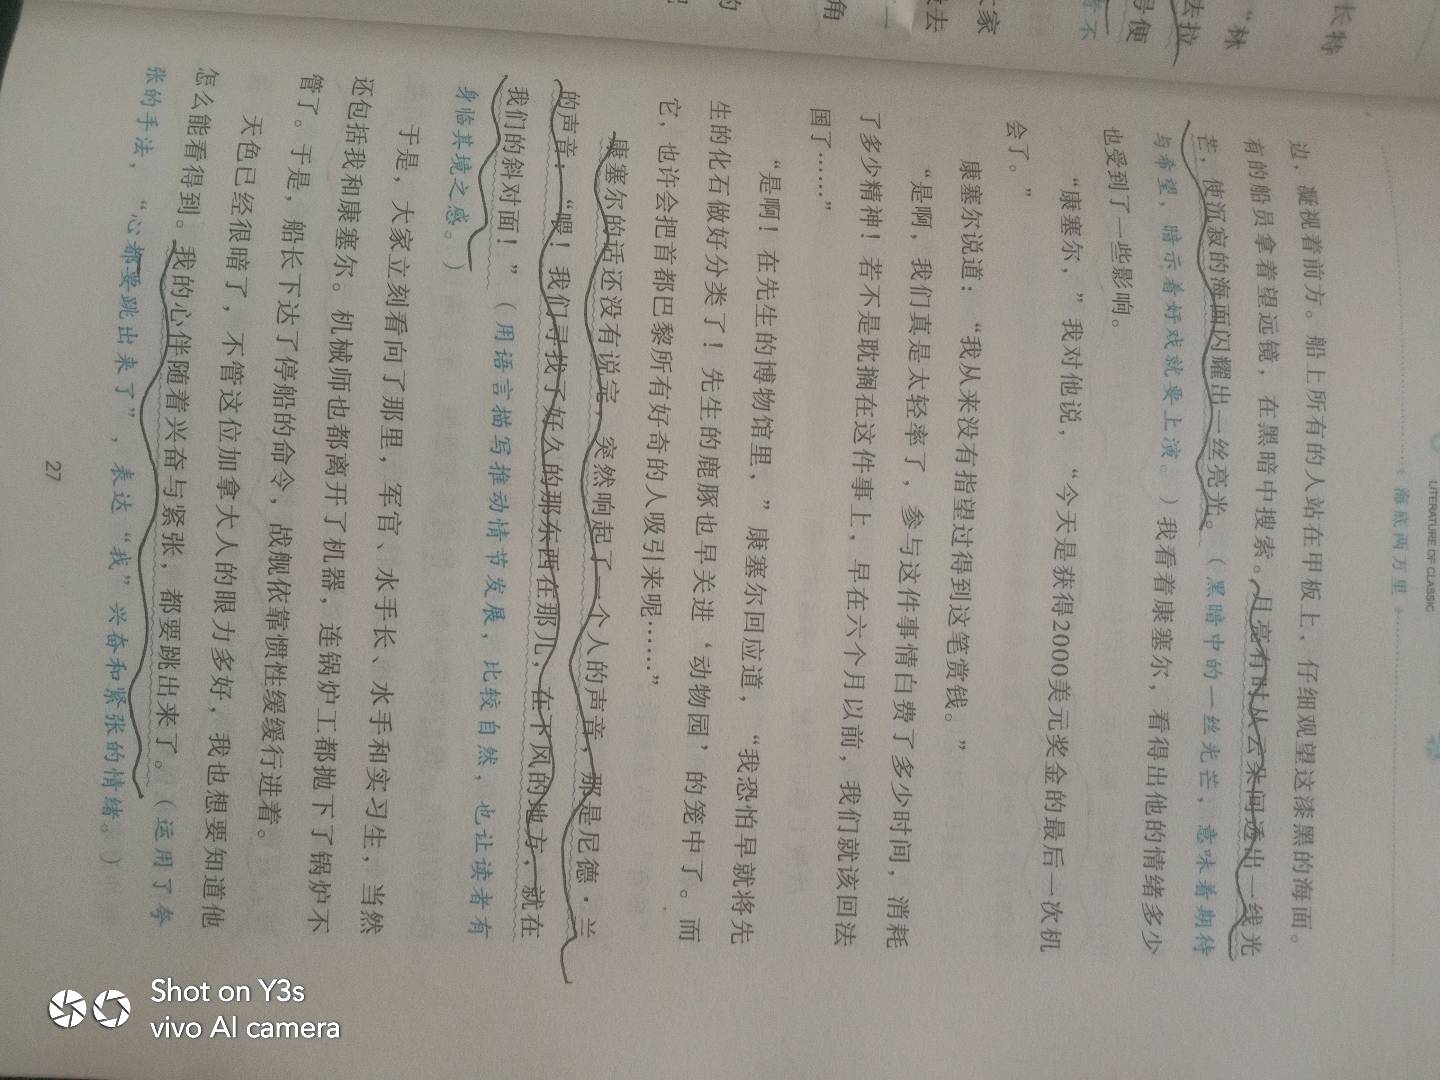 LITERATURE OF CLASSIC
海底两万里
边，凝视着前方。船上所有的人站在甲板上，仔细观望这漆黑的海面。
有的船员拿着望远镜，在黑暗中搜索。月亮有时从云朵间透出一线光
芒，使沉寂的海面闪耀出一丝亮光。（黑暗中的一丝光芒，意味着期待
与希望，暗示着好戏就要上演。）我看着康塞尔，看得出他的情绪多少
也受到了一些影响。
“康塞尔，”我对他说，“今天是获得2000美元奖金的最后一次机
会了。”
康塞尔说道：“我从来没有指望过得到这笔赏钱。”
“是啊，我们真是太轻率了，参与这件事情白费了多少时间，消耗
了多少精神！若不是耽搁在这件事上，早在六个月以前，我们就该回法
国了……”
“是啊！在先生的博物馆里，”康塞尔回应道，“我恐怕早就将先
生的化石做好分类了！先生的鹿豚也早关进‘动物园’的笼中了。而
它，也许会把首都巴黎所有好奇的人吸引来呢……”
康塞尔的话还没有说完，突然响起了一个人的声音，那是尼德·兰
的声音：“喂！我们寻找了好久的那东西在那儿，在下风的地方，就在
我们的斜对面！”（用语言描写推动情节发展，比较自然，也让读者有
身临其境之感。）
于是，大家立刻看向了那里，军官、水手长、水手和实习生，当然
还包括我和康塞尔。机械师也都离开了机器，连锅炉工都抛下了锅炉不
管了。于是，船长下达了停船的命令，战舰依靠惯性缓缓行进着。
天色已经很暗了，不管这位加拿大人的眼力多好，我也想要知道他
怎么能看得到。我的心伴随着兴奋与紧张，都要跳出来了。（运用了夸
张的手法，“心都要跳出来了”，表达“我”兴奋和紧张的情绪。）
27
长特
“林
去拉
号便
不
家
去
角
的
Shot on Y3s
vivo AI camera